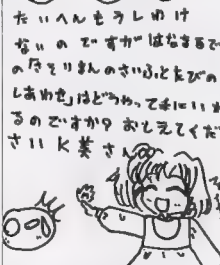 たいへんもうしわけ
ないのですがはなまるで
の「さすりまんのさいふとたびの
しあわせ」はどうやって手にいれ
るのですか?おしえてくだ
さいK美さん